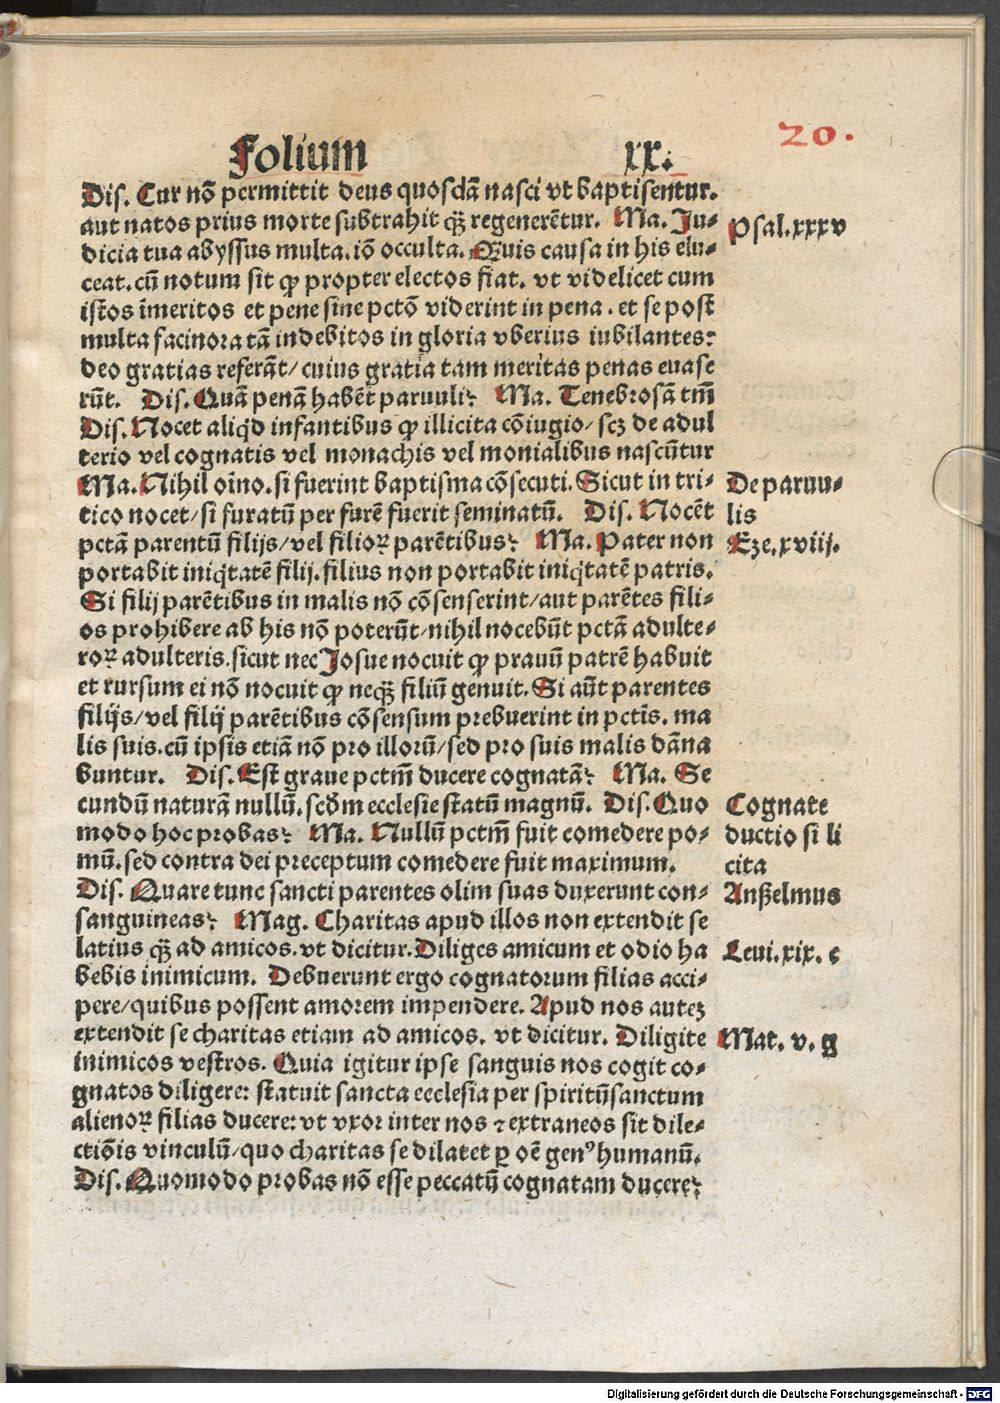 20.
Folium xx.
Dis. Cur nō permittit deus quosdā nasci vt baptisentur.
aut natos prius morte subtrahit qꝫ regenerētur. Ma. Ju-
dicia tua abyssus multa. iō occulta. Quis causa in his elu-
ceat. cū notum sit ꝙ propter electos fiat. vt videlicet cum
istos īmeritos et pene sine pctō viderint in pena. et se post
multa facinora tā indebitos in gloria vberius iubilantes:
deo gratias referāt/ cuius gratia tam meritas penas euase
rūt. Dis. Quā penā habēt paruuli? Ma. Tenebrosā tm̄
Dis. Nocet aliqd infantibus ꝙ illicita cōiugio/ scꝫ de adul
terio vel cognatis vel monachis vel monialibus nascūtur
Ma. Nihil oīno. si fuerint baptisma cōsecuti. Sicut in tri-
tico nocet/ si furatū per furē fuerit seminatū. Dis. Nocēt
pctā parentū filijs/ vel filioꝝ parētibus? Ma. Pater non
portabit iniqtatē filij. filius non portabit iniqtatē patris.
Si filij parētibus in malis nō cōsenserint/ aut parētes fili-
os prohibere ab his nō poterūt/ nihil nocebūt pctā adulte-
roꝝ adulteris. sicut nec Josue nocuit ꝙ prauū patrē habuit
et rursum ei nō nocuit ꝙ neqꝫ filiū genuit. Si aūt parentes
filijs/ vel filij parētibus cōsensum prebuerint in pctīs. ma
lis suis. cū ipsis etiā nō pro illorū/ sed pro suis malis dāna
buntur. Dis. Est graue pctm̄ ducere cognatā? Ma. Se
cundū naturā nullū. scdm ecclesie statū magnū. Dis. Quo
modo hoc probas? Ma. Nullū pctm̄ fuit comedere po-
mū. sed contra dei preceptum comedere fuit maximum.
Dis. Quare tunc sancti parentes olim suas duxerunt con-
sanguineas? Mag. Charitas apud illos non extendit se
latius qꝫ ad amicos. vt dicitur. Diliges amicum et odio ha
bebis inimicum. Debuerunt ergo cognatorum filias acci-
pere/ quibus possent amorem impendere. Apud nos auteꝫ
extendit se charitas etiam ad amicos. vt dicitur. Diligite
inimicos vestros. Quia igitur ipse sanguis nos cogit co-
gnatos diligere: statuit sancta ecclesia per spiritūsanctum
alienoꝝ filias ducere: vt vxor inter nos ⁊ extraneos sit dile-
ctiōis vinculū/ quo charitas se dilatet ꝑ oē genꝰ humanū.
Dis. Quomodo probas nō esse peccatū cognatam ducere?
Psal. xxxv
De paruu-
lis
Eze. xviij.
Cognate
ductio si li
cita
Anßelmus
Leui. xix. c
Mat. v. g
Digitalisierung gefördert durch die Deutsche Forschungsgemeinschaft - DFG